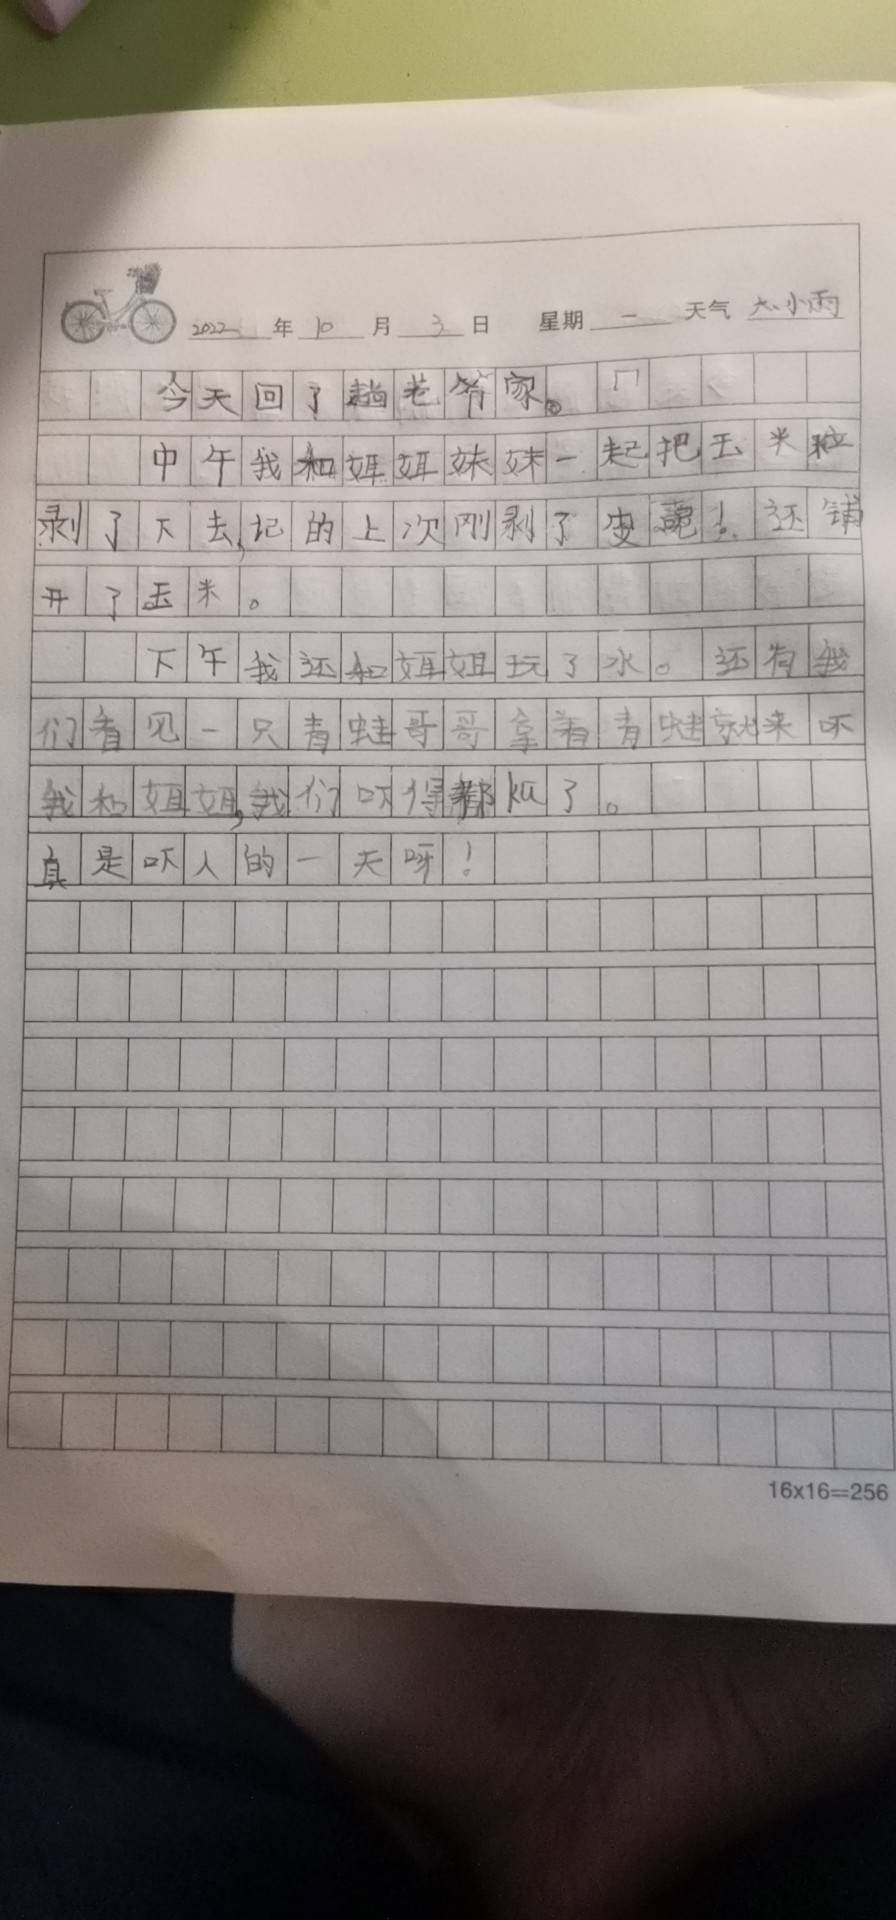 2022年10月3日 星期一 天气 小雨
今天回了趟老爷家。
中午我和姐姐妹妹一起把玉米粒
剥了下去,记的上次刚剥了变! 还铺
开了玉米。
下午我还和姐姐玩了水。还有我
们看见一只青蛙哥哥拿着青蛙就来吓
我和姐姐,我们吓得都kū了。
真是吓人的一天呀!
16x16=256